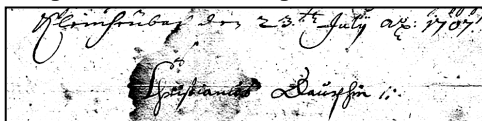 Kleinheubach den 23th July ao: 1707
Christianus Dauphin